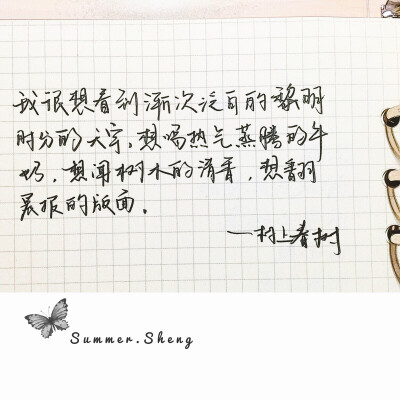 我很想看到渐次泛白的黎明
时分的天宇,想喝热气蒸腾的牛
奶,想闻树木的清香,想翻
晨报的版面。
—村上春树
Summer.Sheng